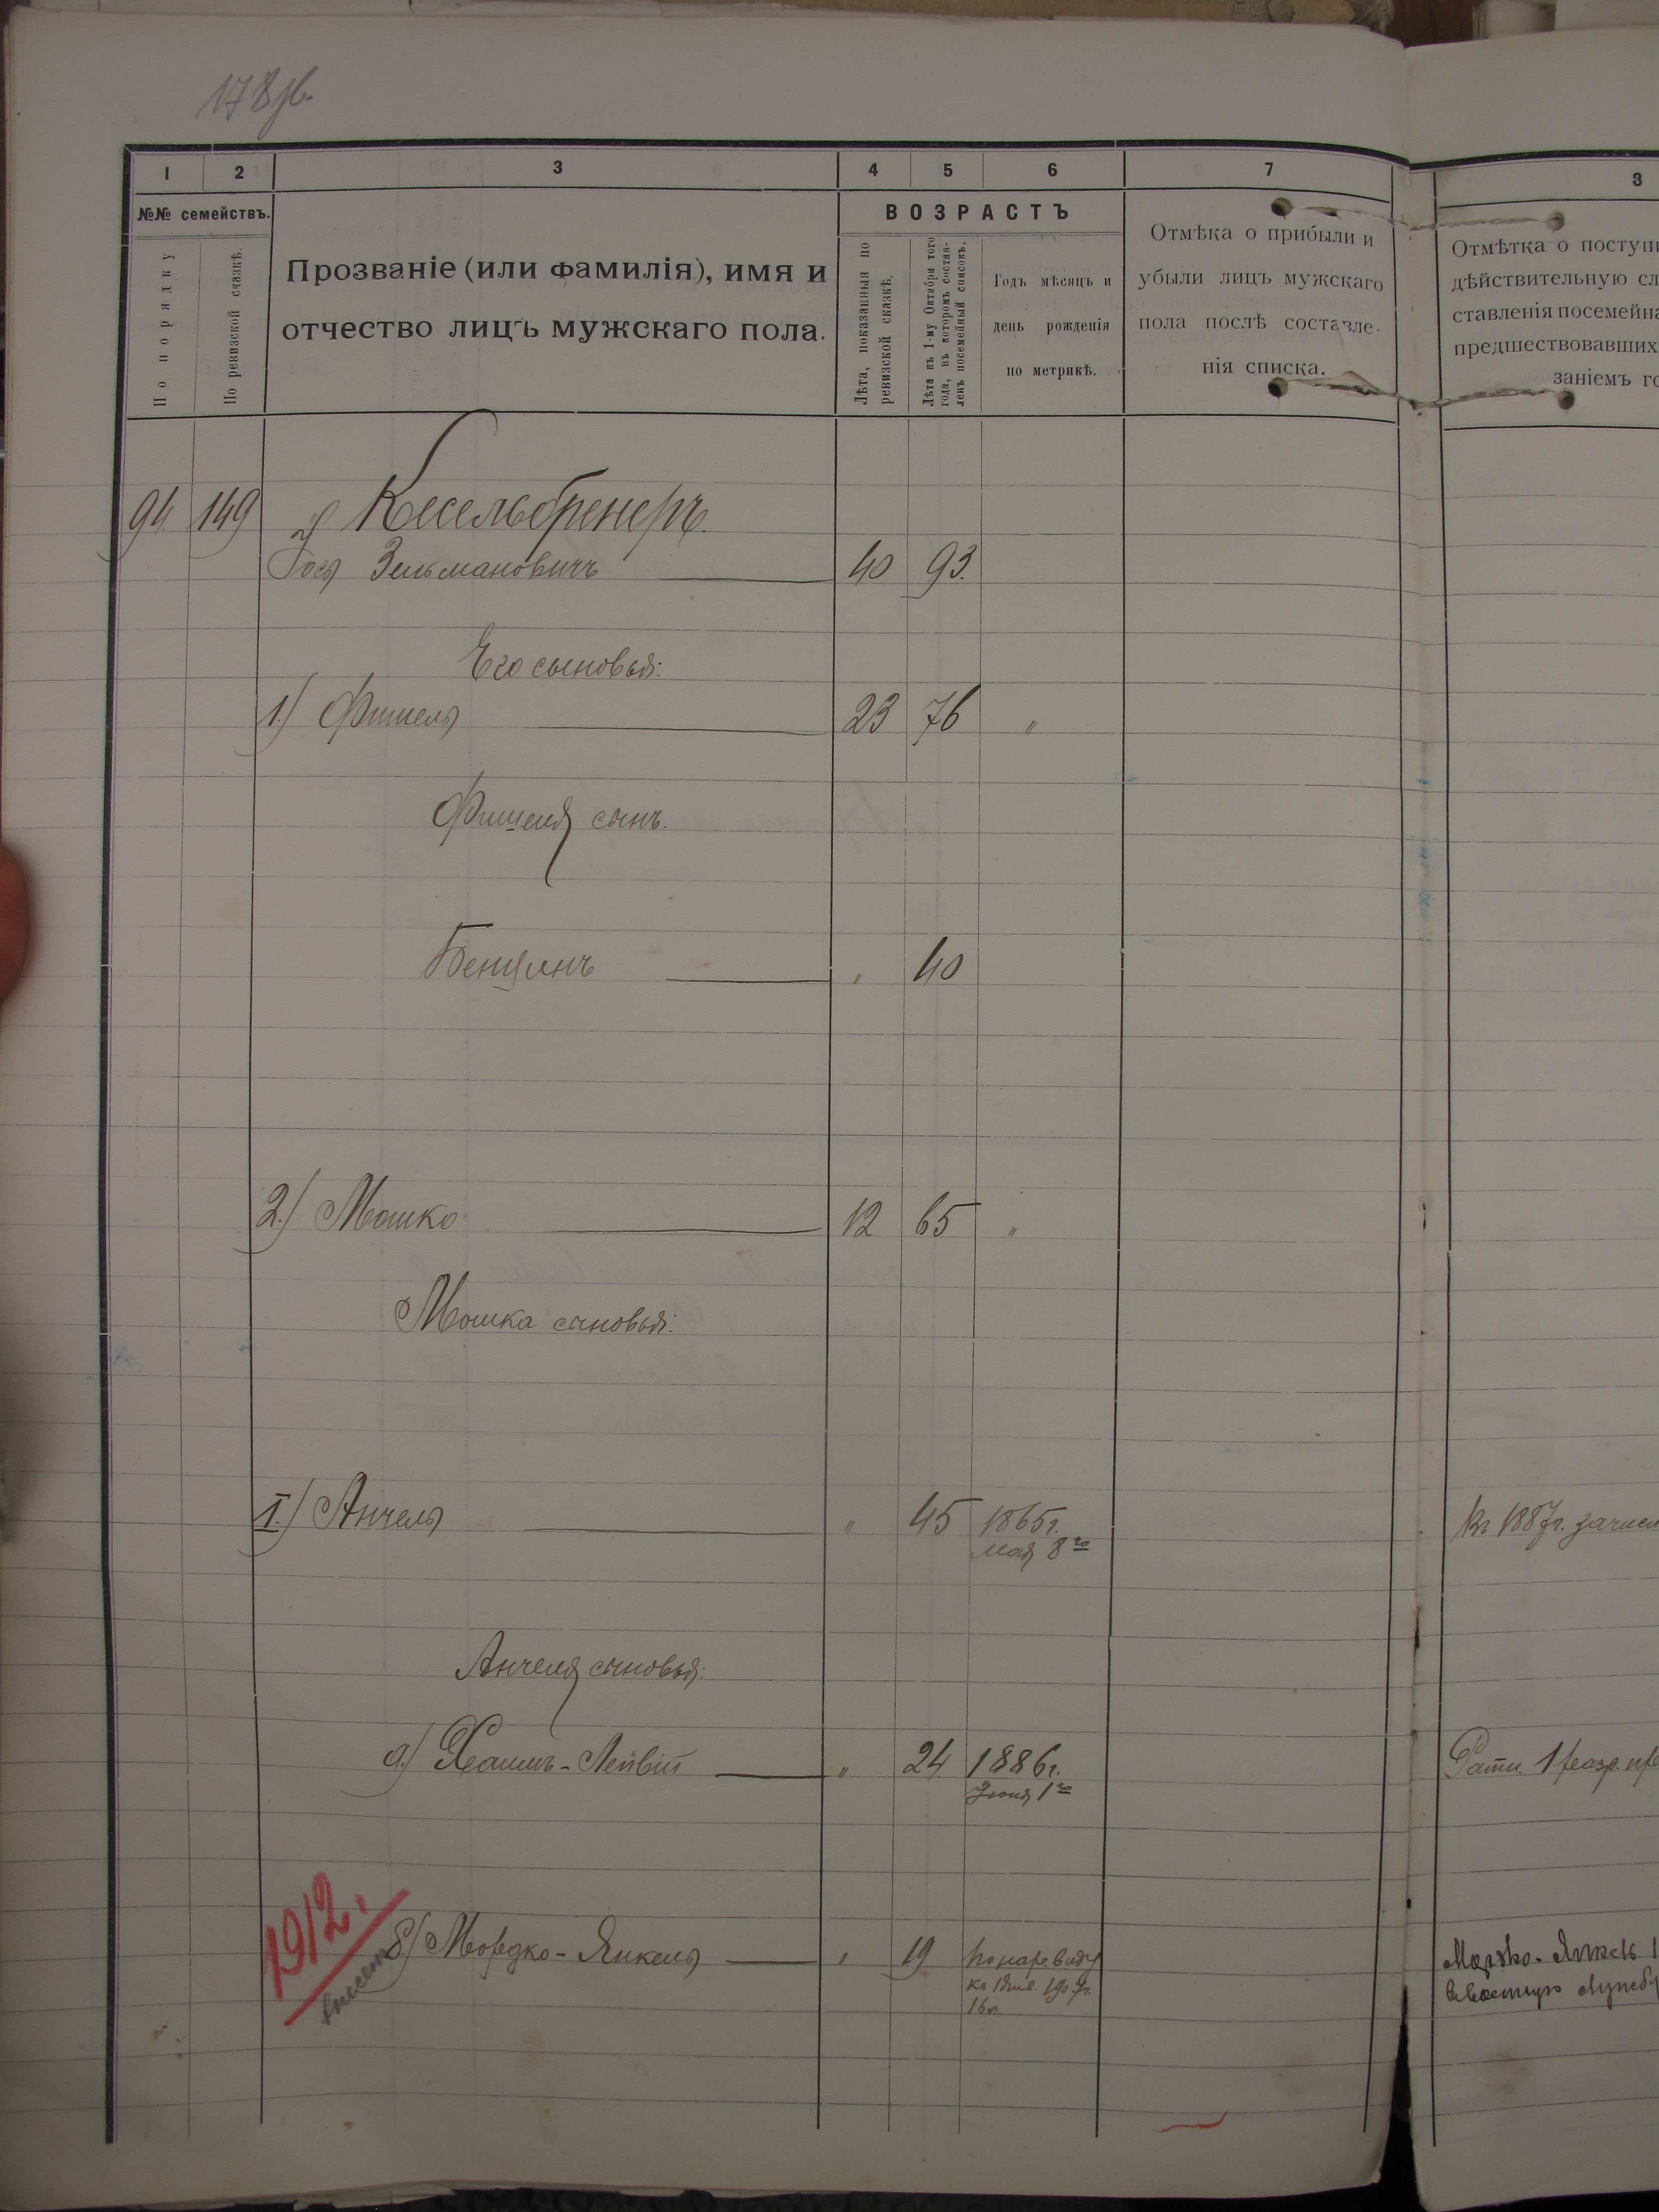 178 об.
1 2 3 4 5 6 7 8
№№ семействъ.
По порядку
По ревизской сказкѣ.
Прозваніе (или фамилія), имя и
отчество лицъ мужскаго пола.
ВОЗРАСТЪ
Лѣта, показанныя по
ревизской сказкѣ.
Лѣта къ 1-му Октября того
года, въ которомъ состав-
ленъ посемейный списокъ.
Годъ мѣсяцъ и
день рожденія
по метрикѣ.
Отмѣка о прибыли и
убыли лицъ мужскаго
пола послѣ составле-
нія списка.
Отмѣтка о поступи
дѣйствительную сл
ставленія посемейна
предшествовавшихъ
заніемъ го
94. 149 Кесельбренеръ.
Іося Зельмановичъ 40 93.
Его сыновья:
1.) Фишель 23 76 "
Фишеля сынъ.
Бенцянъ " 40
2.) Мошко 12 65 "
Мошка сыновья:
I.) Анчель " 45 1865г.
мая 8го
Къ 1887г. зачисл
Анчеля сыновья:
а.) Хаимъ-Лейвій " 24 1886г.
Іюня 1го
Ратн. 1 разр.
1912.
внесен
б.) Мордко-Янкель " 19 по нар. виду
къ 1 Янв. 1907г.
16 л.
Мордко-Янкель